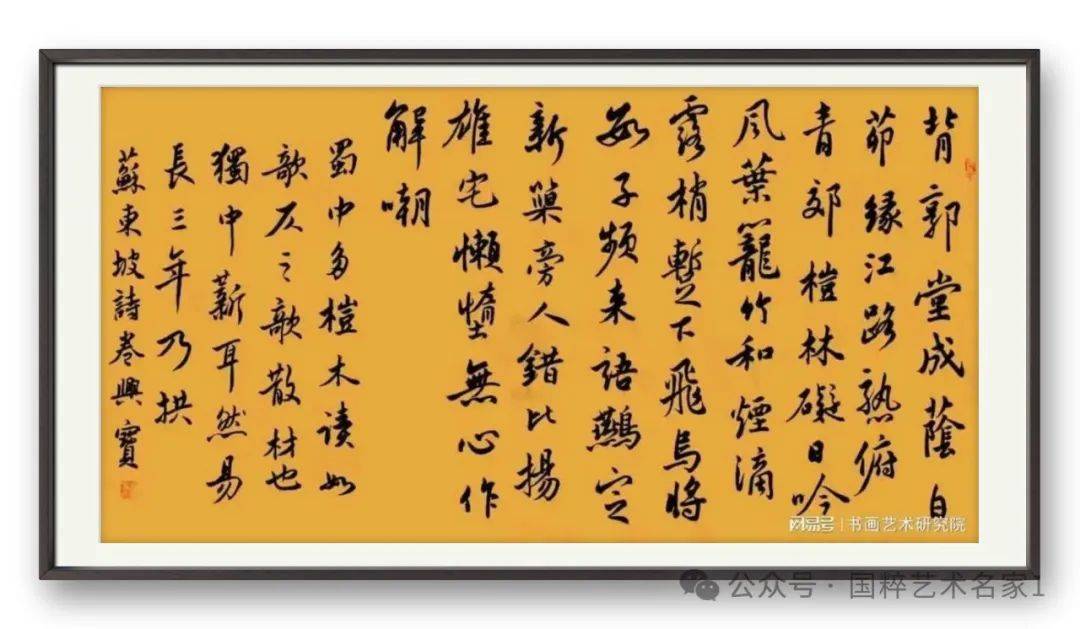 背郭堂成蔭白
茆緣江路熟俯
青郊榿林礙日吟
風葉籠竹和煙滴
露梢暫下飛烏將
數子頻来語鷰定
新巢旁人錯比揚
雄宅懶惰無心作
解嘲
蜀中多榿木读如
欹仄之欹散材也
獨中薪耳然易
長三年乃拱
蘇東坡詩卷興寶
网易号 | 书画艺术研究院
公众号 · 国粹艺术名家1